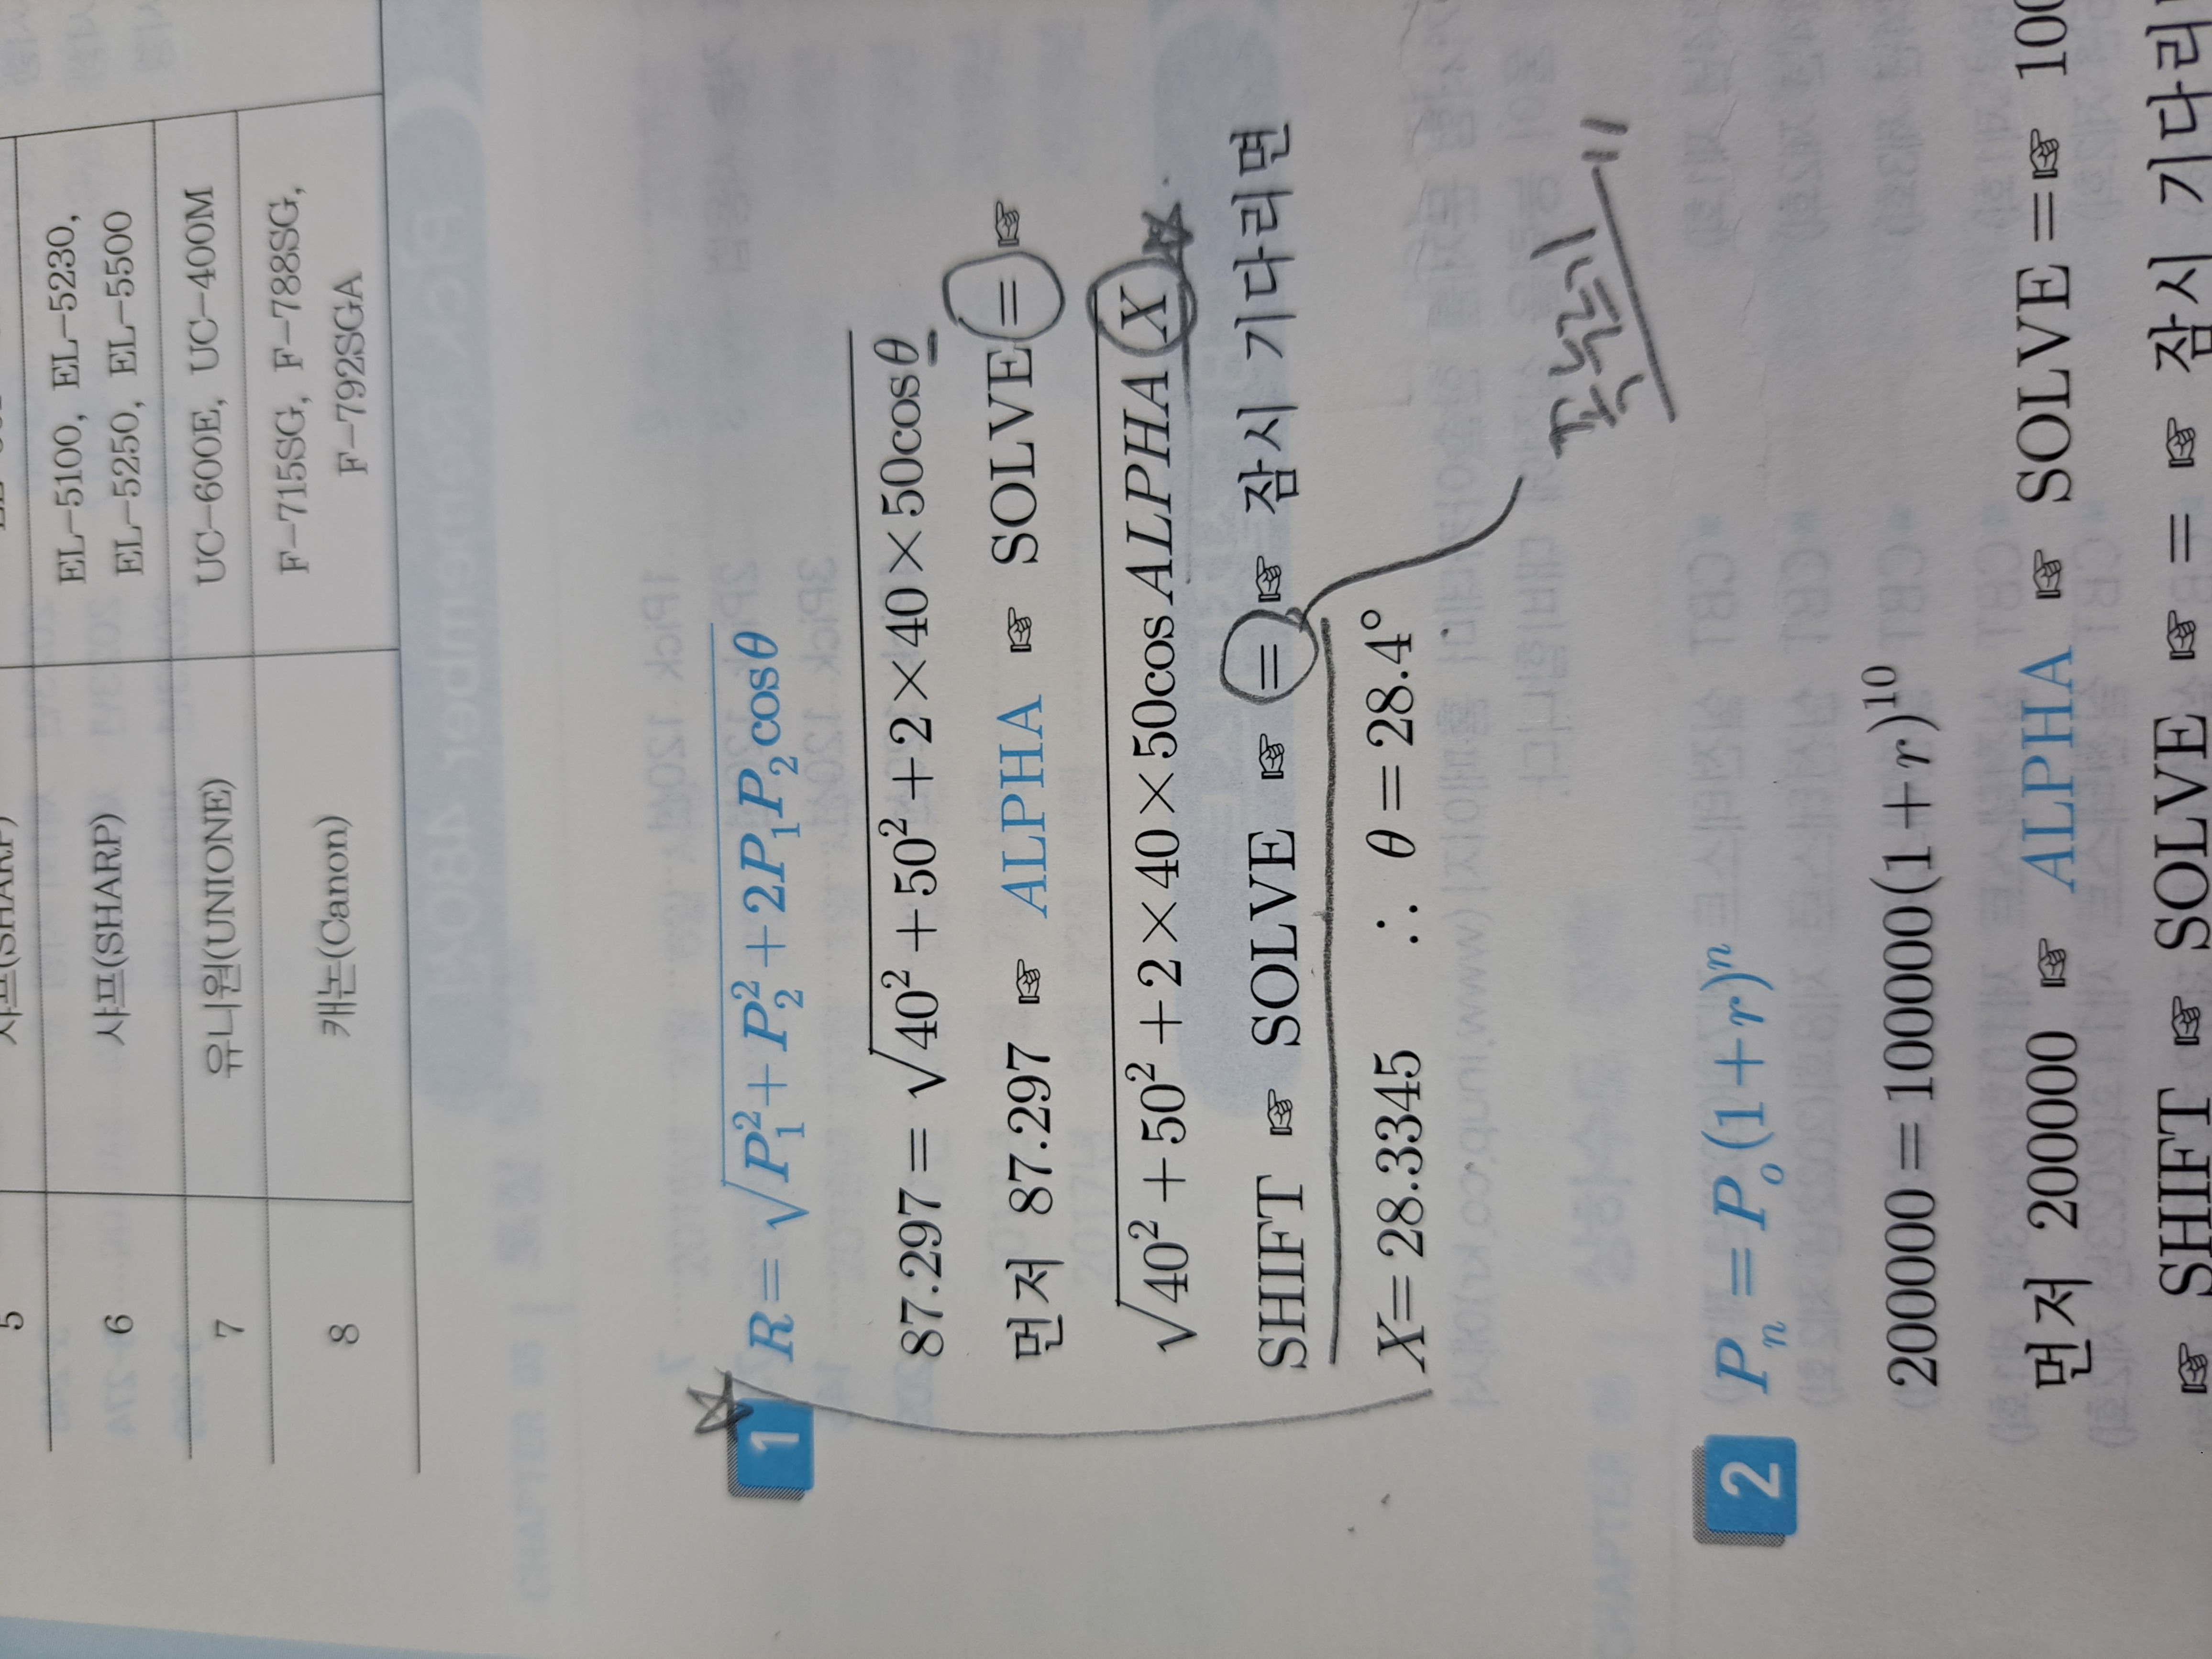 5 샤프(SHARP)
6 샤프(SHARP) EL-5100, EL-5230,
EL-5250, EL-5500
7 유니원(UNIONE) UC-600E, UC-400M
8 캐논(Canon) F-715SG, F-788SG,
F-792SGA
1 R=√P₁²+P₂²+2P₁P₂cosθ
87.297=√40²+50²+2×40×50cosθ
먼저 87.297 ☞ ALPHA ☞ SOLVE= ☞
√40²+50²+2×40×50cosALPHA X
SHIFT ☞ SOLVE ☞ = ☞ 잠시 기다리면
X=28.3345 ∴ θ=28.4°
2 Pₙ=Pₒ(1+r)ⁿ
200000=100000(1+r)¹⁰
먼저 200000 ☞ ALPHA ☞ SOLVE=☞ 100
☞ SHIFT ☞ SOLVE ☞ = ☞ 잠시 기다리